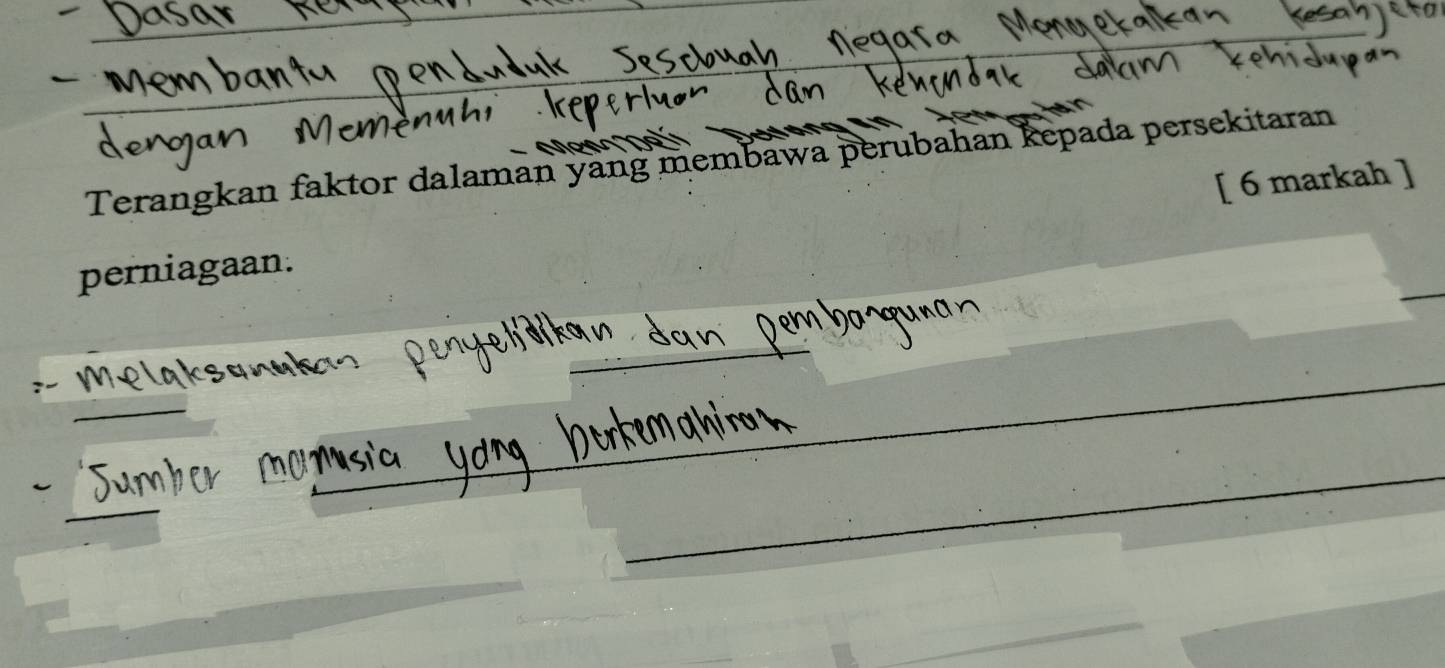 - Dasar
- Membantu penduduk sesebuah negara Mengekalkan
dengan Memenuhi keperluan dan kehendak dalam kehidupan
- Membeli barangan
Terangkan faktor dalaman yang membawa perubahan kepada persekitaran
[ 6 markah ]
perniagaan.
- Melaksanakan penyelidikan dan pembangunan
- Sumber manusia yang berkemahiran